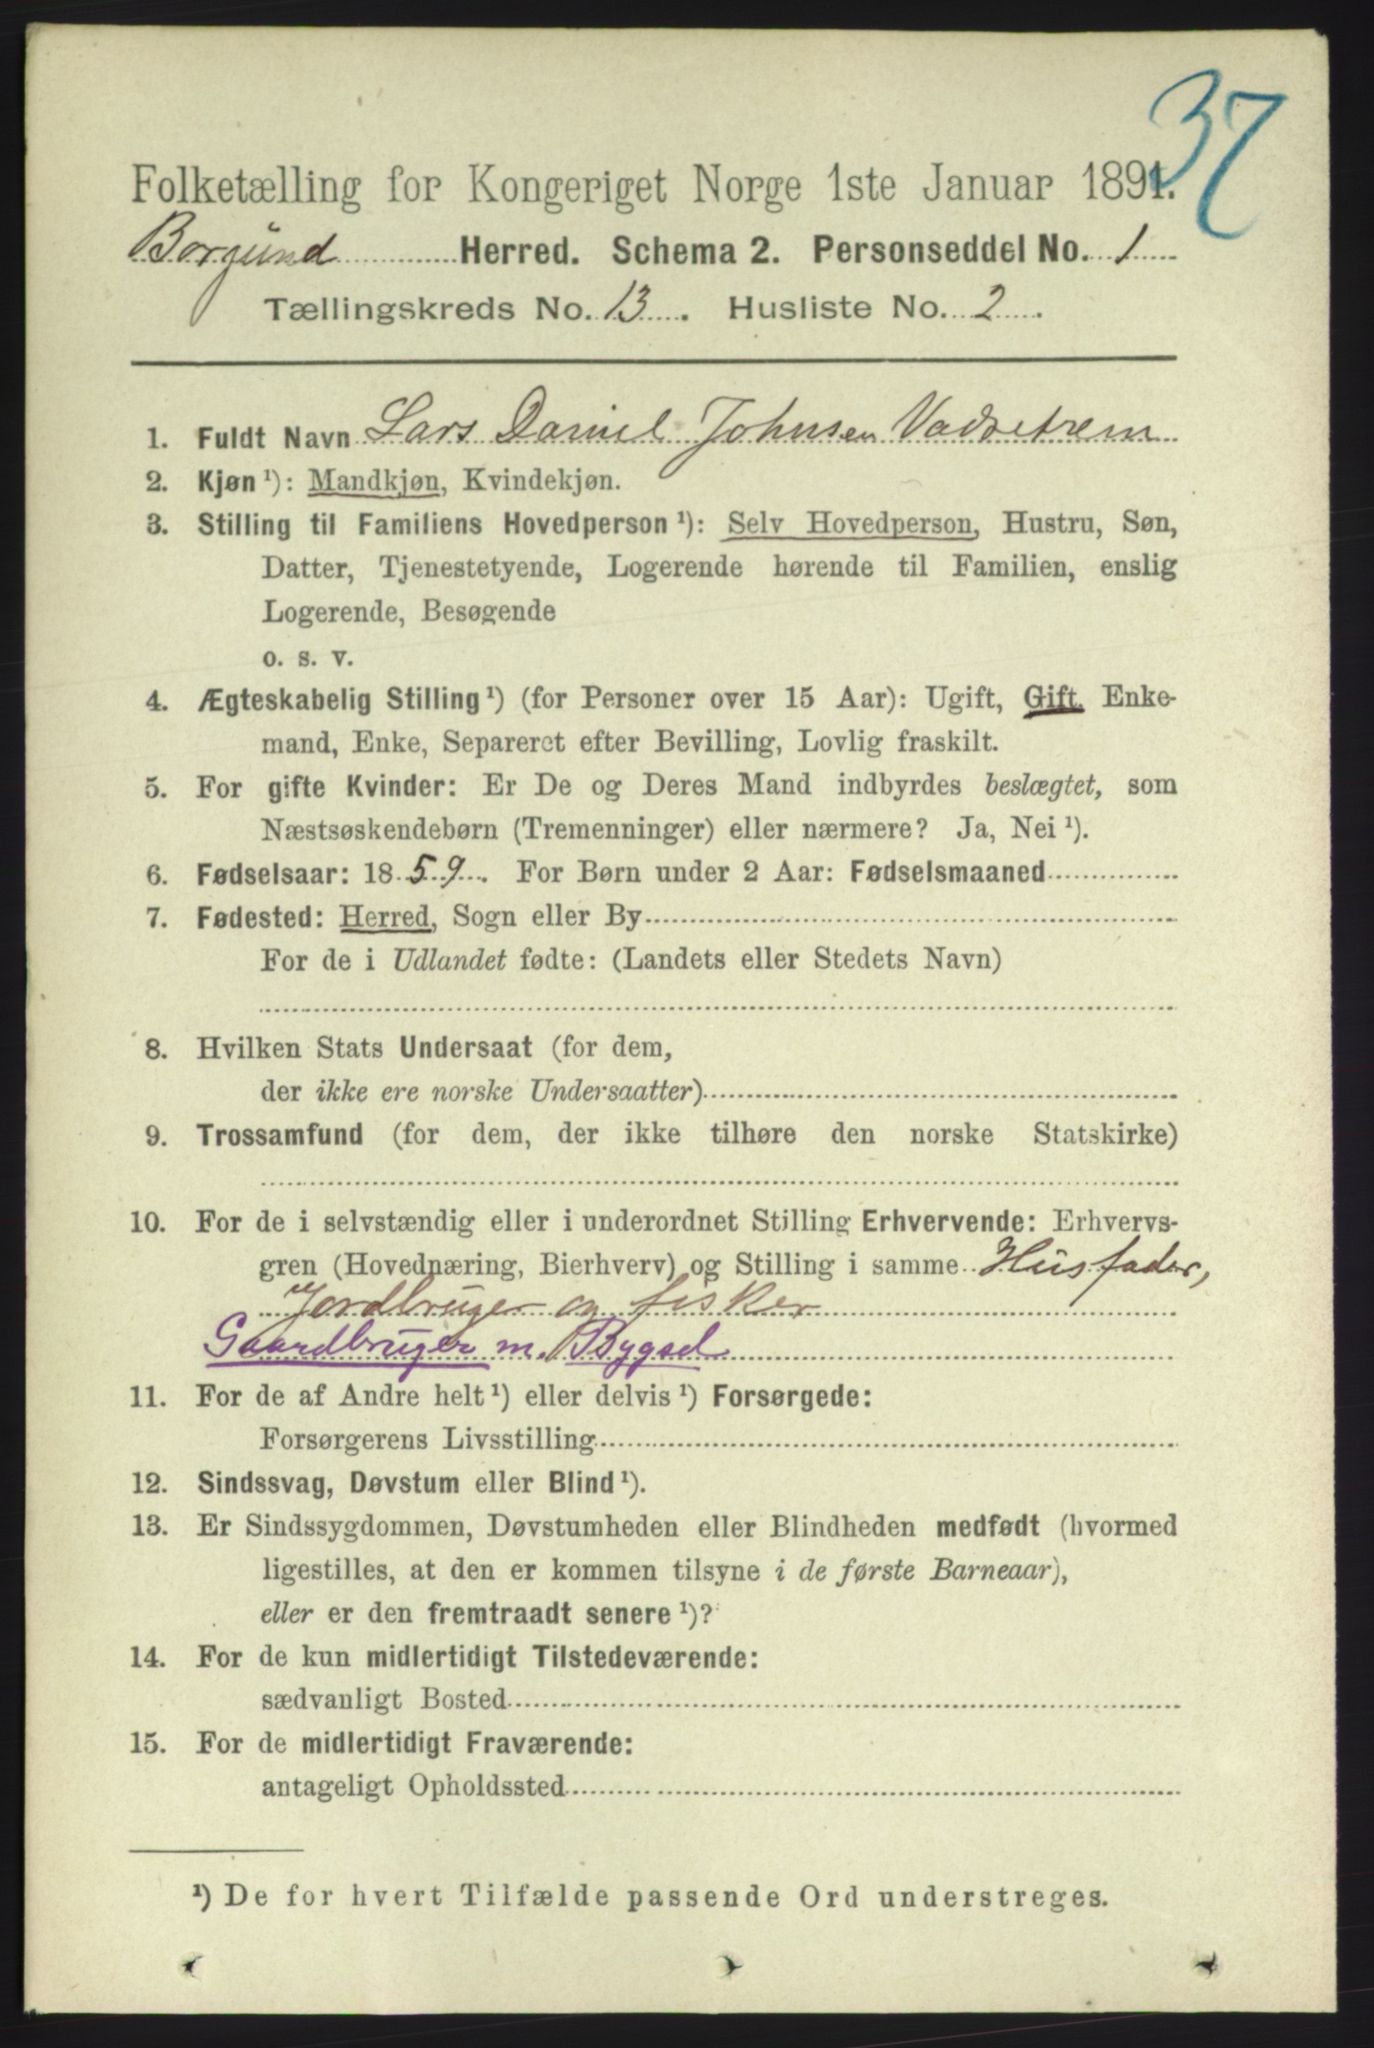 37
Folketælling for Kongeriget Norge 1ste Januar 1891.
Borgund Herred. Schema 2. Personseddel No. 1
Tællingskreds No. 13. Husliste No. 2.
1. Fuldt Navn Lars Daniel Johnsen Vadsetrem
2. Kjøn ¹): Mandkjøn, Kvindekjøn.
3. Stilling til Familiens Hovedperson ¹): Selv Hovedperson, Hustru, Søn,
Datter, Tjenestetyende, Logerende hørende til Familien, enslig
Logerende, Besøgende
o. s. v.
4. Ægteskabelig Stilling ¹) (for Personer over 15 Aar): Ugift, Gift, Enke-
mand, Enke, Separeret efter Bevilling, Lovlig fraskilt.
5. For gifte Kvinder: Er De og Deres Mand indbyrdes beslægtet, som
Næstsøskendebørn (Tremenninger) eller nærmere? Ja, Nei ¹).
6. Fødselsaar: 1859. For Børn under 2 Aar: Fødselsmaaned
7. Fødested: Herred, Sogn eller By
For de i Udlandet fødte: (Landets eller Stedets Navn)
8. Hvilken Stats Undersaat (for dem,
der ikke ere norske Undersaatter)
9. Trossamfund (for dem, der ikke tilhøre den norske Statskirke)
10. For de i selvstændig eller i underordnet Stilling Erhvervende: Erhvervs-
gren (Hovednæring, Bierhverv) og Stilling i samme Husfader,
Jordbruger og fisker
Gaardbruger m. Bygsel
11. For de af Andre helt ¹) eller delvis ¹) Forsørgede:
Forsørgerens Livsstilling
12. Sindssvag, Døvstum eller Blind ¹).
13. Er Sindssygdommen, Døvstumheden eller Blindheden medfødt (hvormed
ligestilles, at den er kommen tilsyne i de første Barneaar),
eller er den fremtraadt senere ¹)?
14. For de kun midlertidigt Tilstedeværende:
sædvanligt Bosted
15. For de midlertidigt Fraværende:
antageligt Opholdssted
¹) De for hvert Tilfælde passende Ord understreges.